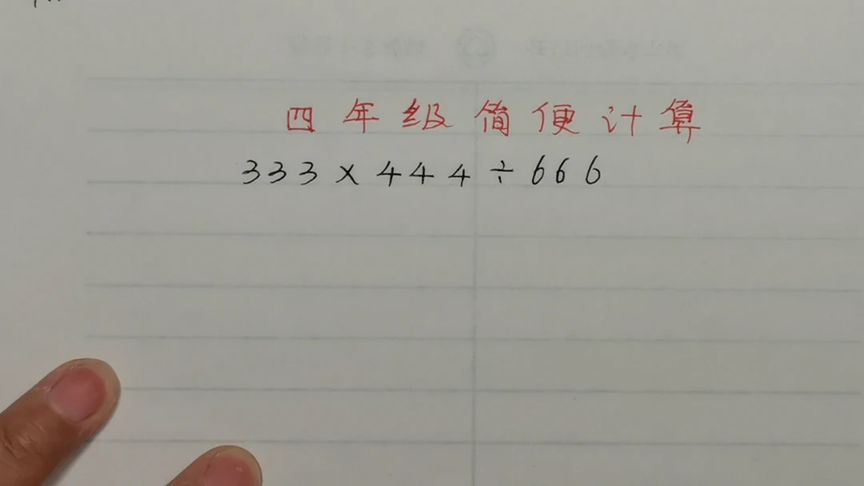 四年级简便计算
333×444÷666